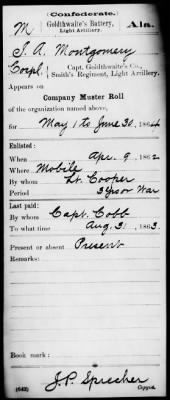 (Confederate.)
M Goldthwaite's Battery, Light Artillery. Ala.
S. A. Montgomery
Corpl, Capt. Goldthwaite's Co., Smith's Regiment, Light Artillery.
Appears on
Company Muster Roll
of the organization named above,
for May 1 to June 30, 1864
Enlisted:
When Apr. 9, 1862
Where Mobile
By whom Lt. Cooper
Period 3 Yrs or War
Last paid:
By whom Capt. Cobb
To what time Aug. 31, 1863.
Present or absent Present
Remarks:
Book mark:
J. P. Sprecher
(642) Copyist.